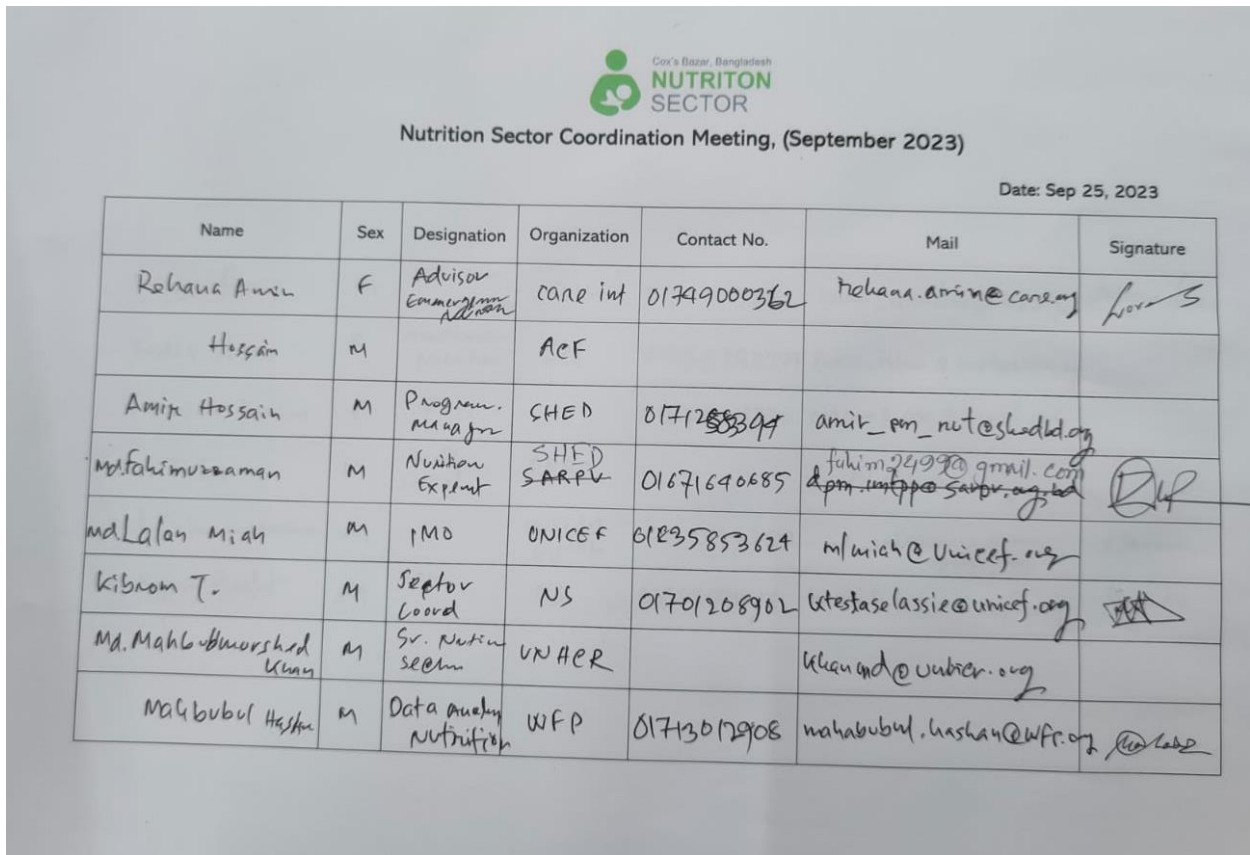 Cox's Bazar, Bangladesh
NUTRITON
SECTOR
Nutrition Sector Coordination Meeting, (September 2023)
Date: Sep 25, 2023
Name Sex Designation Organization Contact No. Mail Signature
Rehana Amin F Advisor care int 01749000362 rehana.amin@care.org
Hossain M ACF
Amir Hossain M Program. Manager SHED amir_pm_nut@shedbd.org
Md.fahimuzzaman M Nutrition Expert SHED SARPV 01671640685 fahim2499@gmail.com
Md Lalan Miah M IMO UNICEF 01235853624 mlmiah@unicef.org
Kibrom T. M Sector Coord NS 01701208902 ktestaselassie@unicef.org
Md. Mahbubmurshed Khan M Sr. UNHCR khanmd@unhcr.org
Mahbubul M Data Nutrition WFP 01713012908 mahabubul.hashan@wfp.org